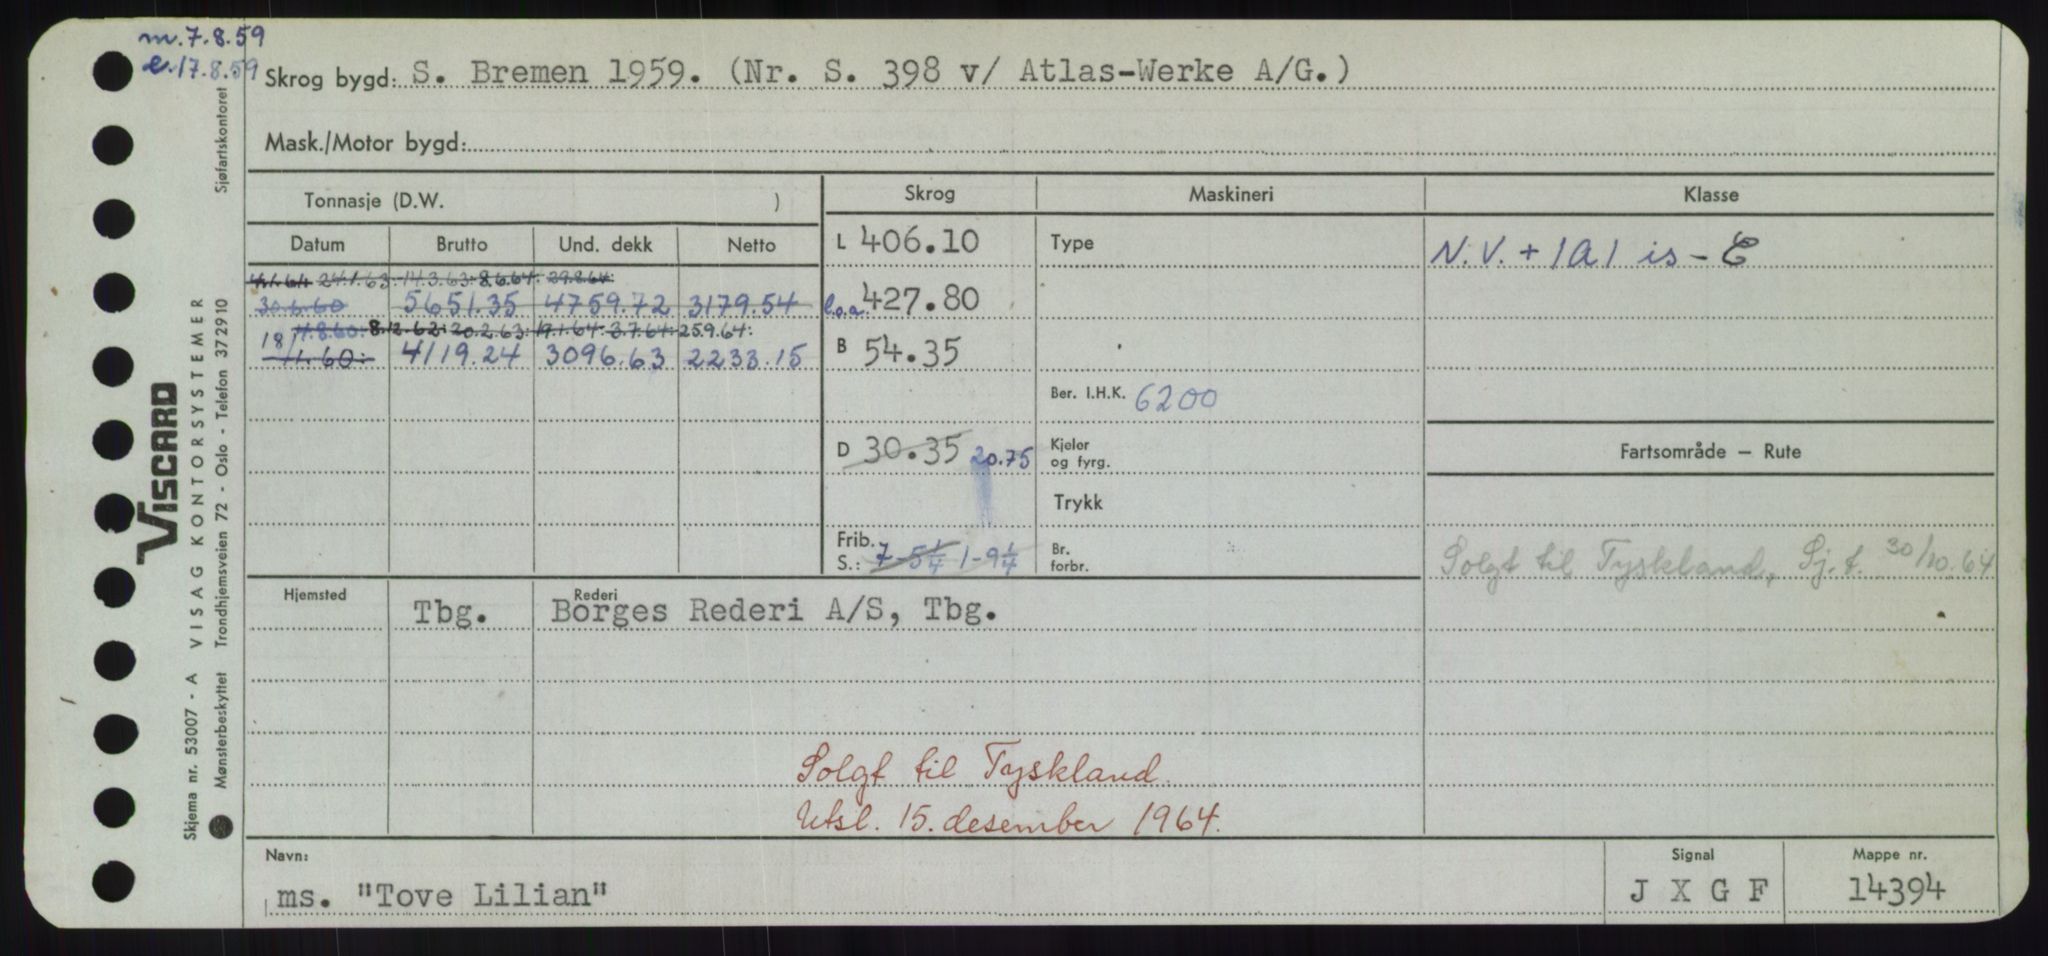 m. 7.8.59
e. 17.8.59
Skrog bygd: S. Bremen 1959. (Nr. S. 398 v/ Atlas-Werke A/G.)
Mask./Motor bygd:
Tonnasje (D.W. )
Skrog
Maskineri
Klasse
Datum Brutto Und. dekk Netto
L 406.10
Type
N.V. + 1A1 is - C
24.1.63. 14.3.63. 8.6.64. 29.8.64.
30.6.60 5651.35 4759.72 3179.54
l.o.a. 427.80
11.8.60. 8.12.62. 20.2.63. 19.1.64. 3.7.64. 25.9.64.
18/1.60. 4119.24 3096.63 2233.15
B 54.35
Ber. I.H.K. 6200
D 30.35 20.75
Kjeler og fyrg.
Fartsområde — Rute
Trykk
Frib. S.: 7-5 1/4 1-9 1/4
Br. forbr.
Solgt til Tyskland, Sj.t. 30/10.64
Hjemsted
Rederi
Tbg. Borges Rederi A/S, Tbg.
Solgt til Tyskland.
Utsl. 15. desember 1964.
Navn:
Signal
Mappe nr.
ms. "Tove Lilian"
J X G F
14394
VISCARD
Skjema nr. 53007 - A VISAG KONTORSYSTEMER
Mønsterbeskyttet Trondhjemsveien 72 - Oslo - Telefon 372910
Sjøfartskontoret